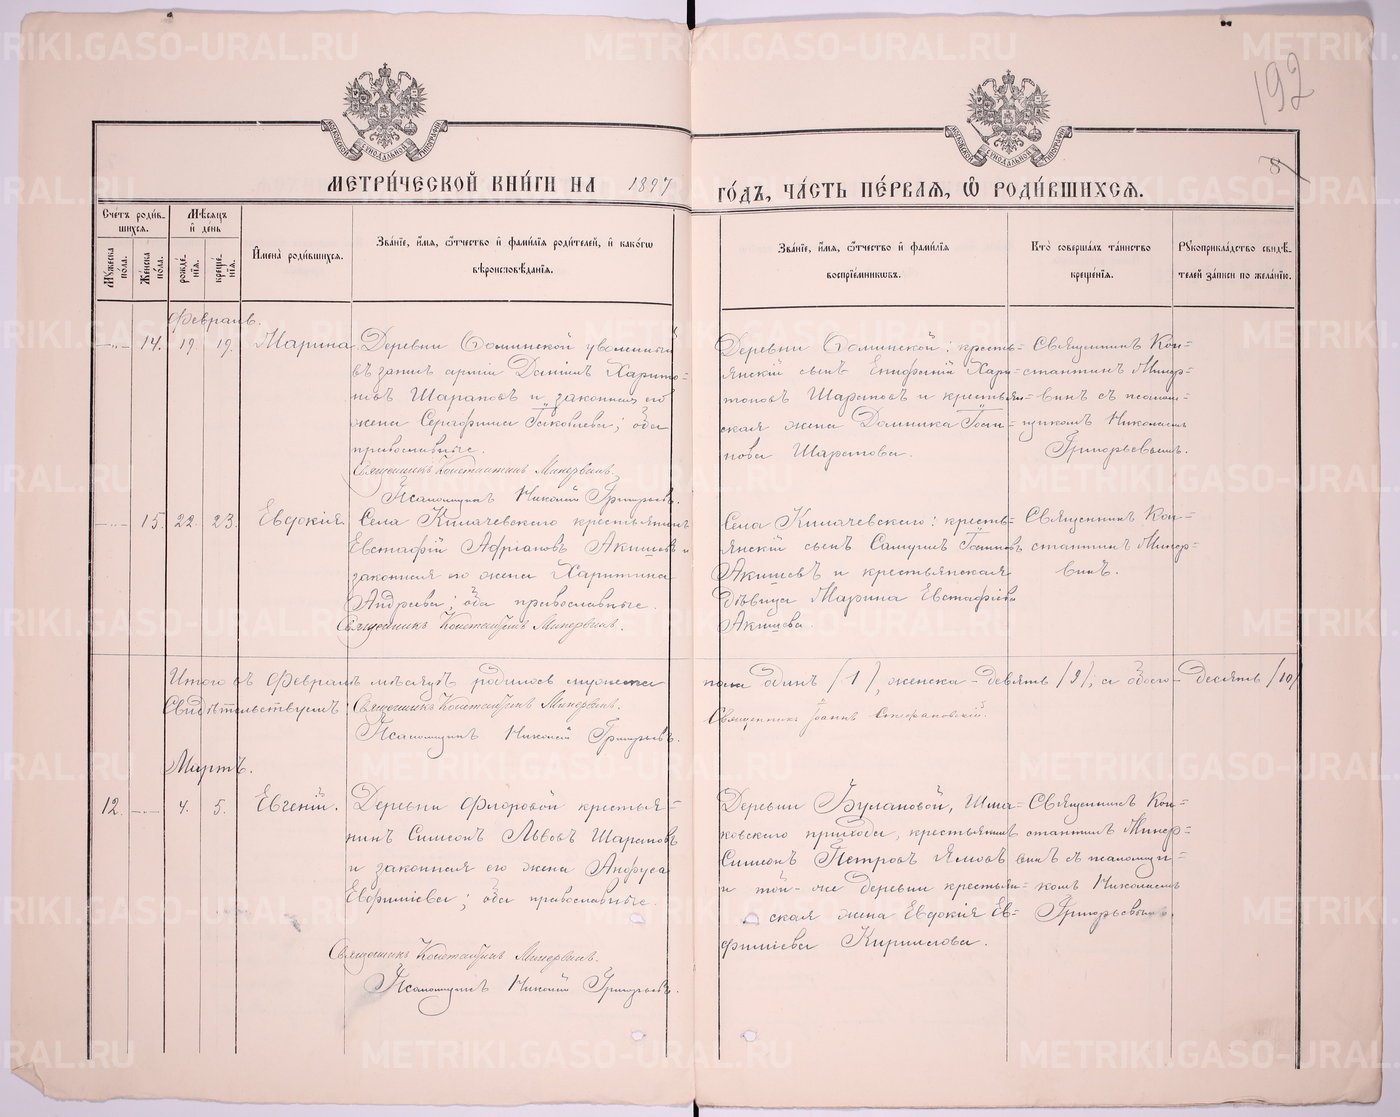 192
МЕТРИ́ЧЕСКОЙ КНИ́ГИ НА 1897 ГО́ДЪ, ЧА́СТЬ ПЕ́РВАѦ, Ѡ҆ РОДИ́ВШИХСѦ.
Сче́тъ роди́в-
шихся.
Мѣ́сяцъ
и҆ де́нь
И҆мена̀ роди́вшихся.
Зва́нїе, и҆́мя, ѻ҆́тчество и҆ фами́лїя роди́телей, и҆ како́гѡ
вѣроисповѣ́данїя.
Зва́нїе, и҆́мя, ѻ҆́тчество и҆ фами́лїя
воспрїе́мникѡвъ.
Кто̀ соверша́лъ та́инство
креще́нїя.
Рꙋкоприкла́дство свидѣ́-
телей за́писи по жела́нїю.
Мꙋ́жеска
по́ла.
Же́нска
по́ла.
рожде́-
нїя.
креще́-
нїя.
Февраль.
14. 19. 19. Марина
Деревни Фоминской уволенный
въ запасъ армiи Данiилъ Харито-
новъ Шараповъ и законная его
жена Серафима Iаковлева; оба
православные.
Священникъ Константинъ Минервинъ.
Псаломщикъ Николай Григорьевъ.
Деревни Фоминской: кресть-
янскiй сынъ Епифанiй Хари-
тоновъ Шараповъ и крестьян-
ская жена Домника Iоси-
пова Шарапова.
Священникъ Кон-
стантинъ Минер-
винъ съ псалом-
щикомъ Николаемъ
Григорьевымъ.
15. 22. 23. Евдокiя
Села Килачевскаго крестьянинъ
Евстафiй Адрiановъ Акишевъ и
законная его жена Харитина
Андреева; оба православные.
Священникъ Константинъ Минервинъ.
Села Килачевскаго: кресть-
янскiй сынъ Самуилъ Iосиповъ
Акишевъ и крестьянская
дѣвица Марина Евстафiева
Акишева.
Священникъ Кон-
стантинъ Минер-
винъ.
Итого въ Февралѣ мѣсяцѣ родилось мужеска пола одинъ /1/, женска - девять /9/, а обоего - десять /10/
Свидѣтельствуемъ: Священникъ Константинъ Минервинъ.
Священникъ Iоаннъ Стефановскiй.
Псаломщикъ Николай Григорьевъ.
Мартъ.
12. 4. 5. Евгенiй.
Деревни Фроровой крестья-
нинъ Симеонъ Львовъ Шараповъ
и законная его жена Анфуса
Евфимiева; оба православные.
Священникъ Константинъ Минервинъ.
Псаломщикъ Николай Григорьевъ.
Деревни Булановой, Шма-
ковскаго прихода, крестьянинъ
Симеонъ Петровъ Ямовъ
и той-же деревни крестьян-
ская жена Евдокiя Ев-
фимiева Кириллова.
Священникъ Кон-
стантинъ Минер-
винъ съ псаломщи-
комъ Николаемъ
Григорьевымъ.
METRIKI.GASO-URAL.RU